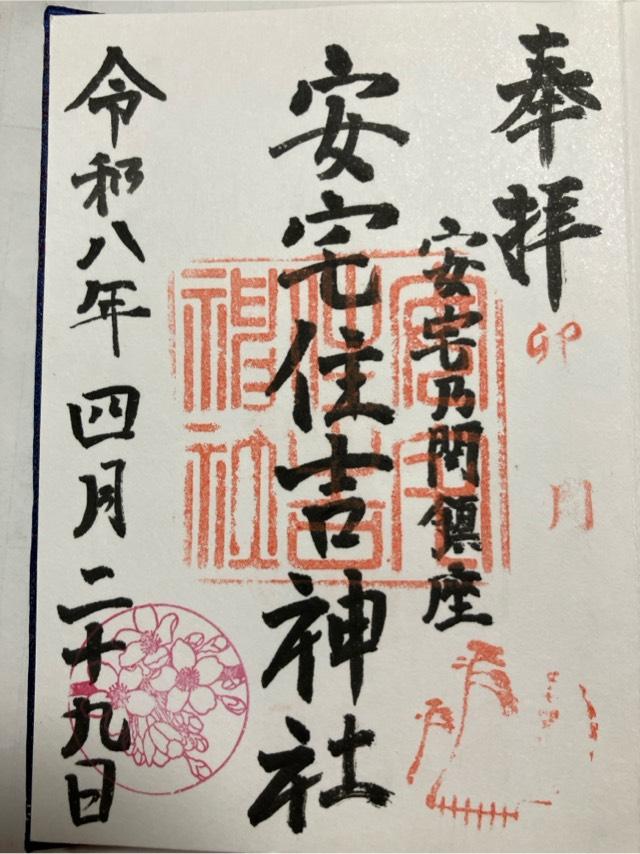 奉拝
卯
月
安宅乃関鎮座
安宅住吉神社
安宅住吉神社
令和八年四月二十九日